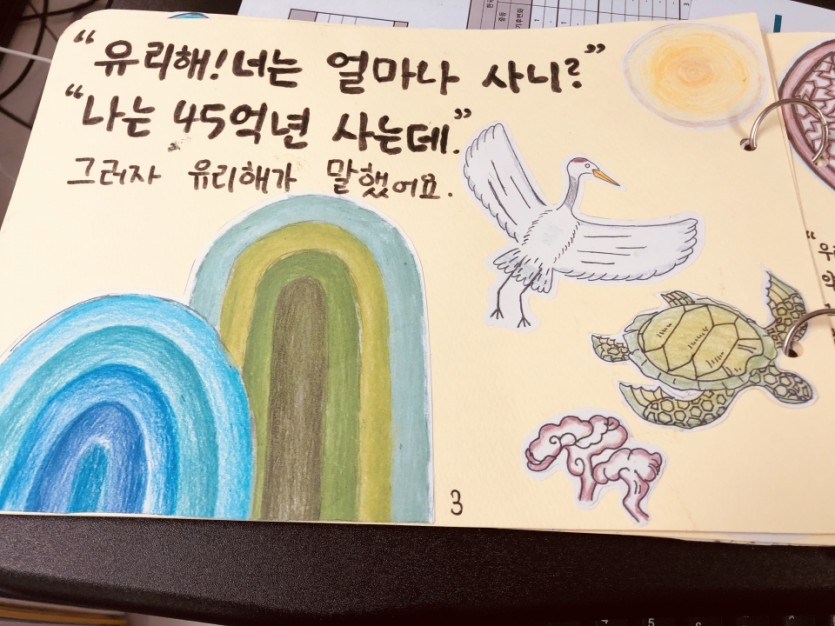 “유리해! 너는 얼마나 사니?”
“나는 45억년 사는데.”
그러자 유리해가 말했어요.
3